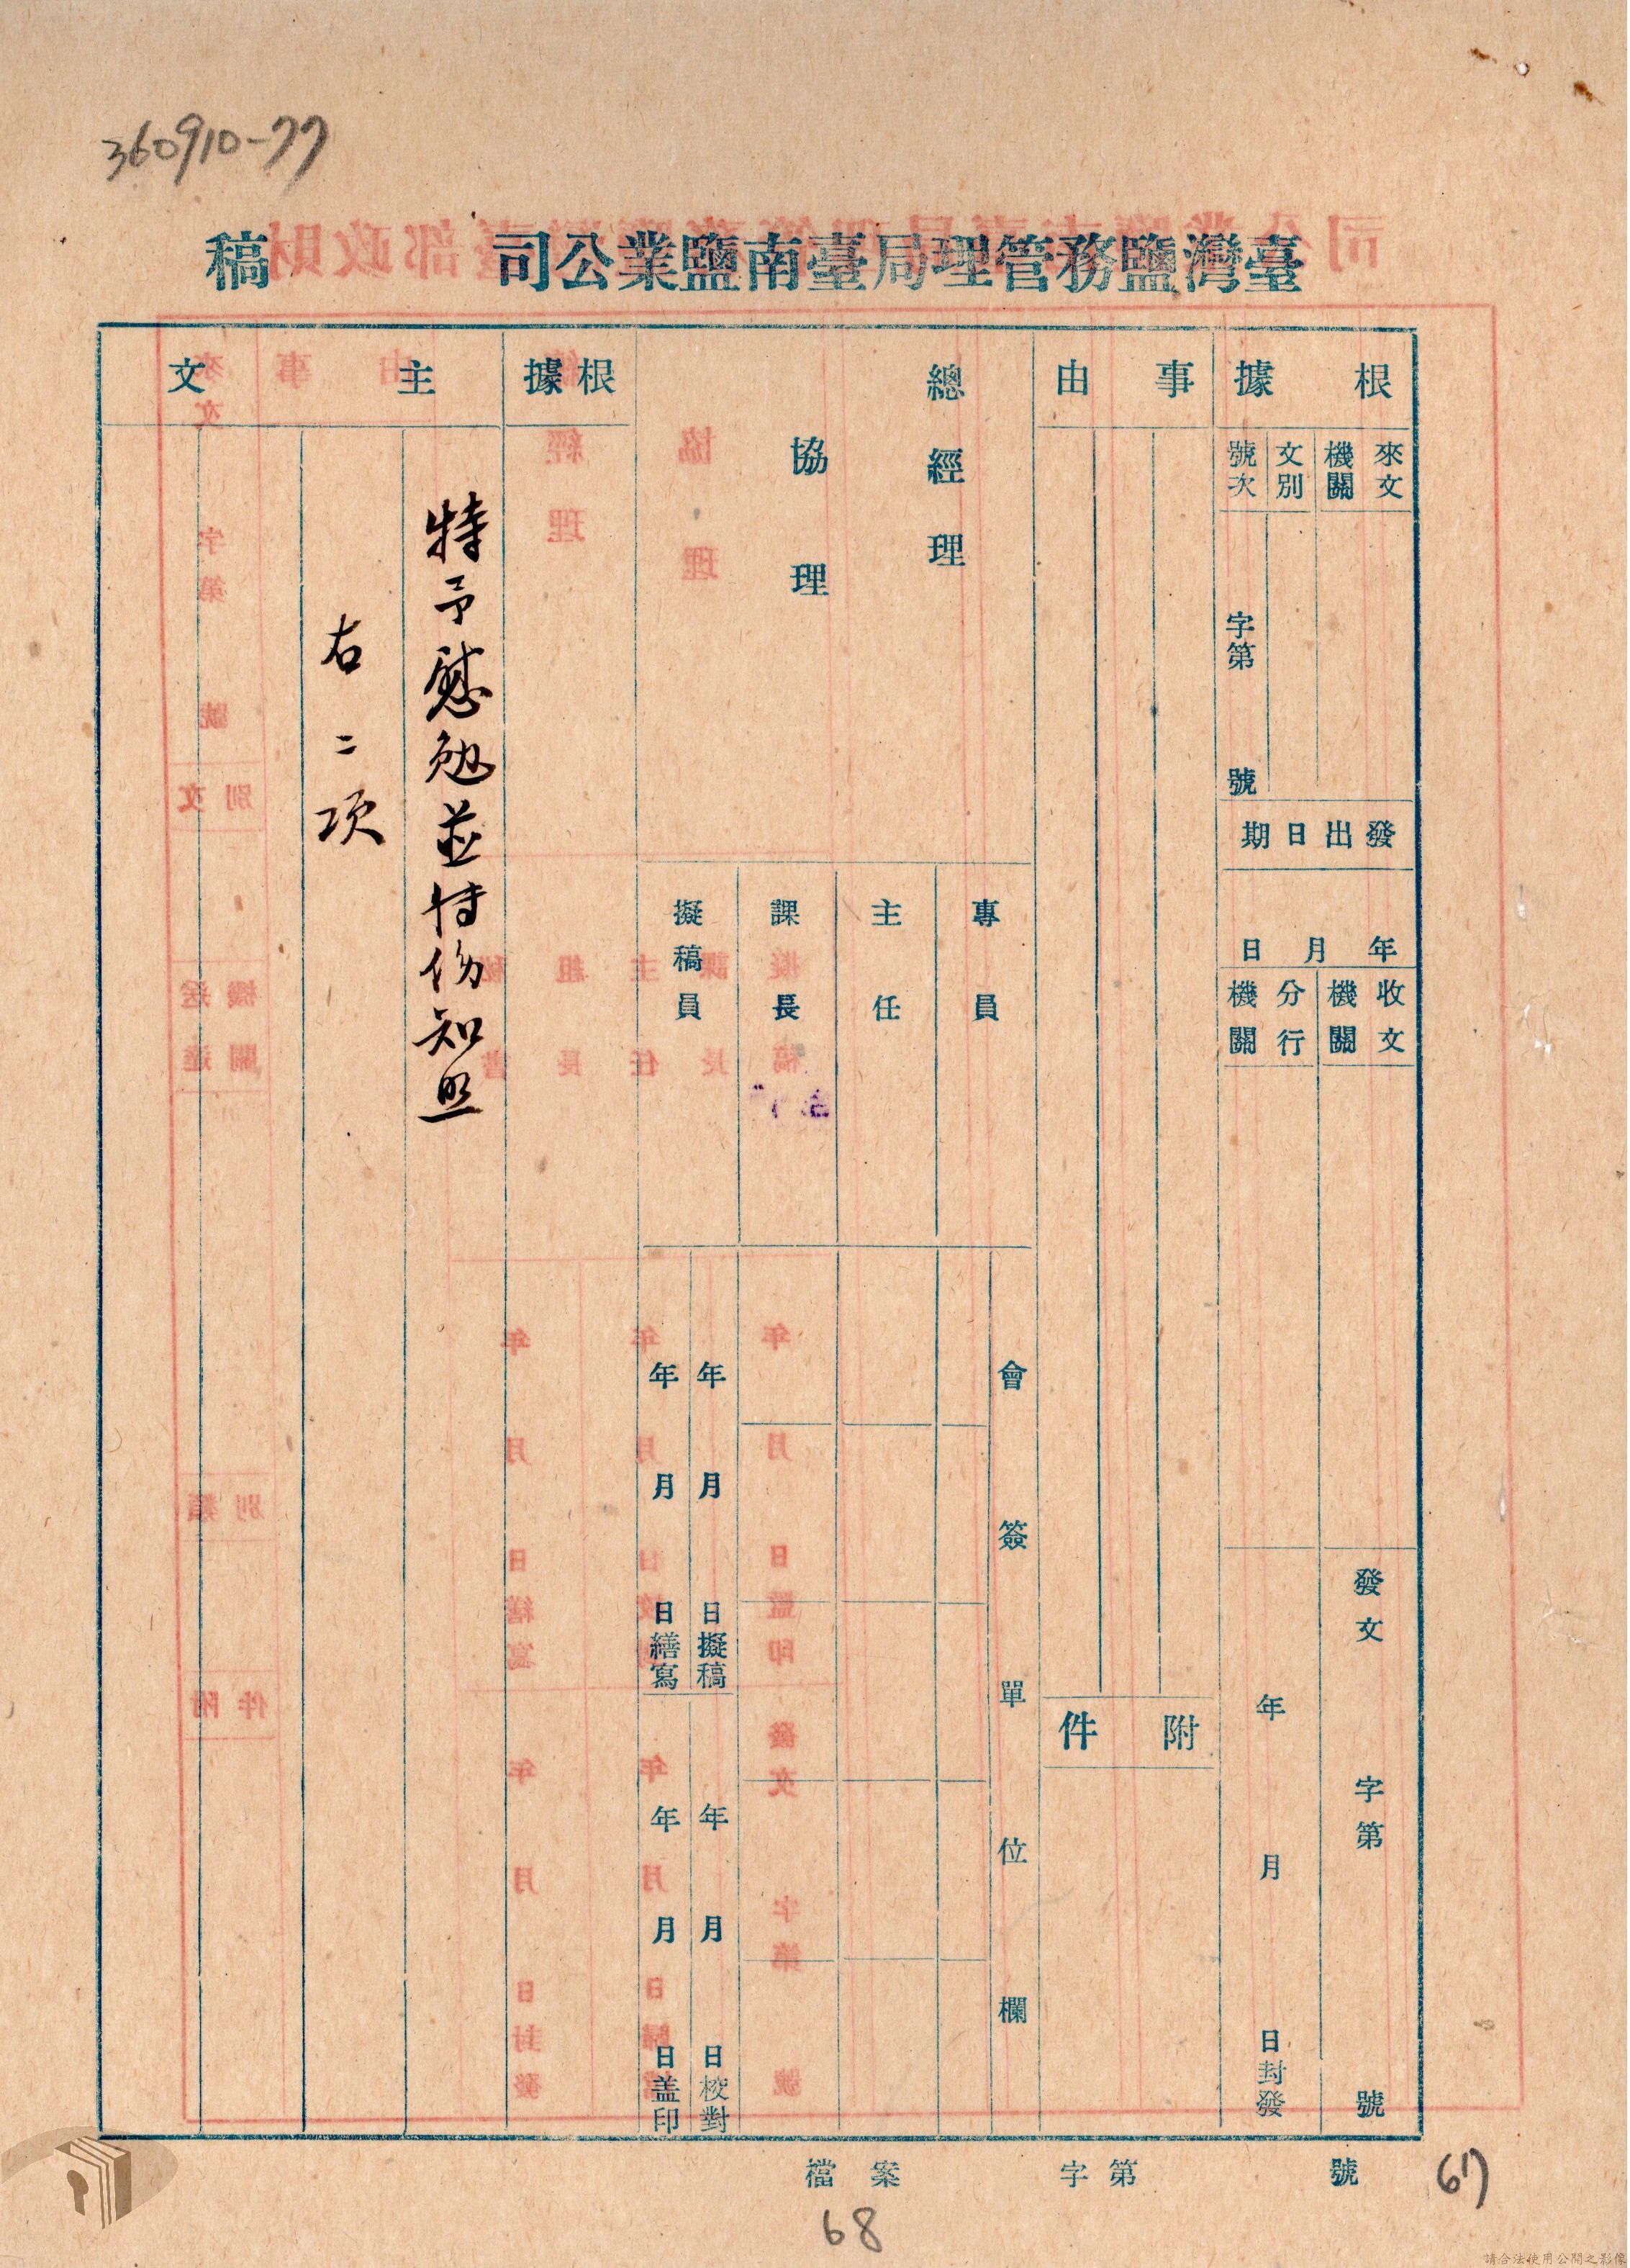 360910-77
臺灣鹽務管理局臺南鹽業公司 稿
根據
來文機關
文別
號次
字第 號
發出日期
年 月 日
收文機關
分行機關
發文 字第 號
年 月 日封發
事由
附件
總經理
協理
專員
主任
課長
擬稿員
會簽單位欄
年 月 日擬稿
年 月 日繕寫
年 月 日校對
年 月 日盖印
根據
主文
特予慰勉並特飭知照
右二項
檔案 字第 號
67
68
請合法使用公開之影像